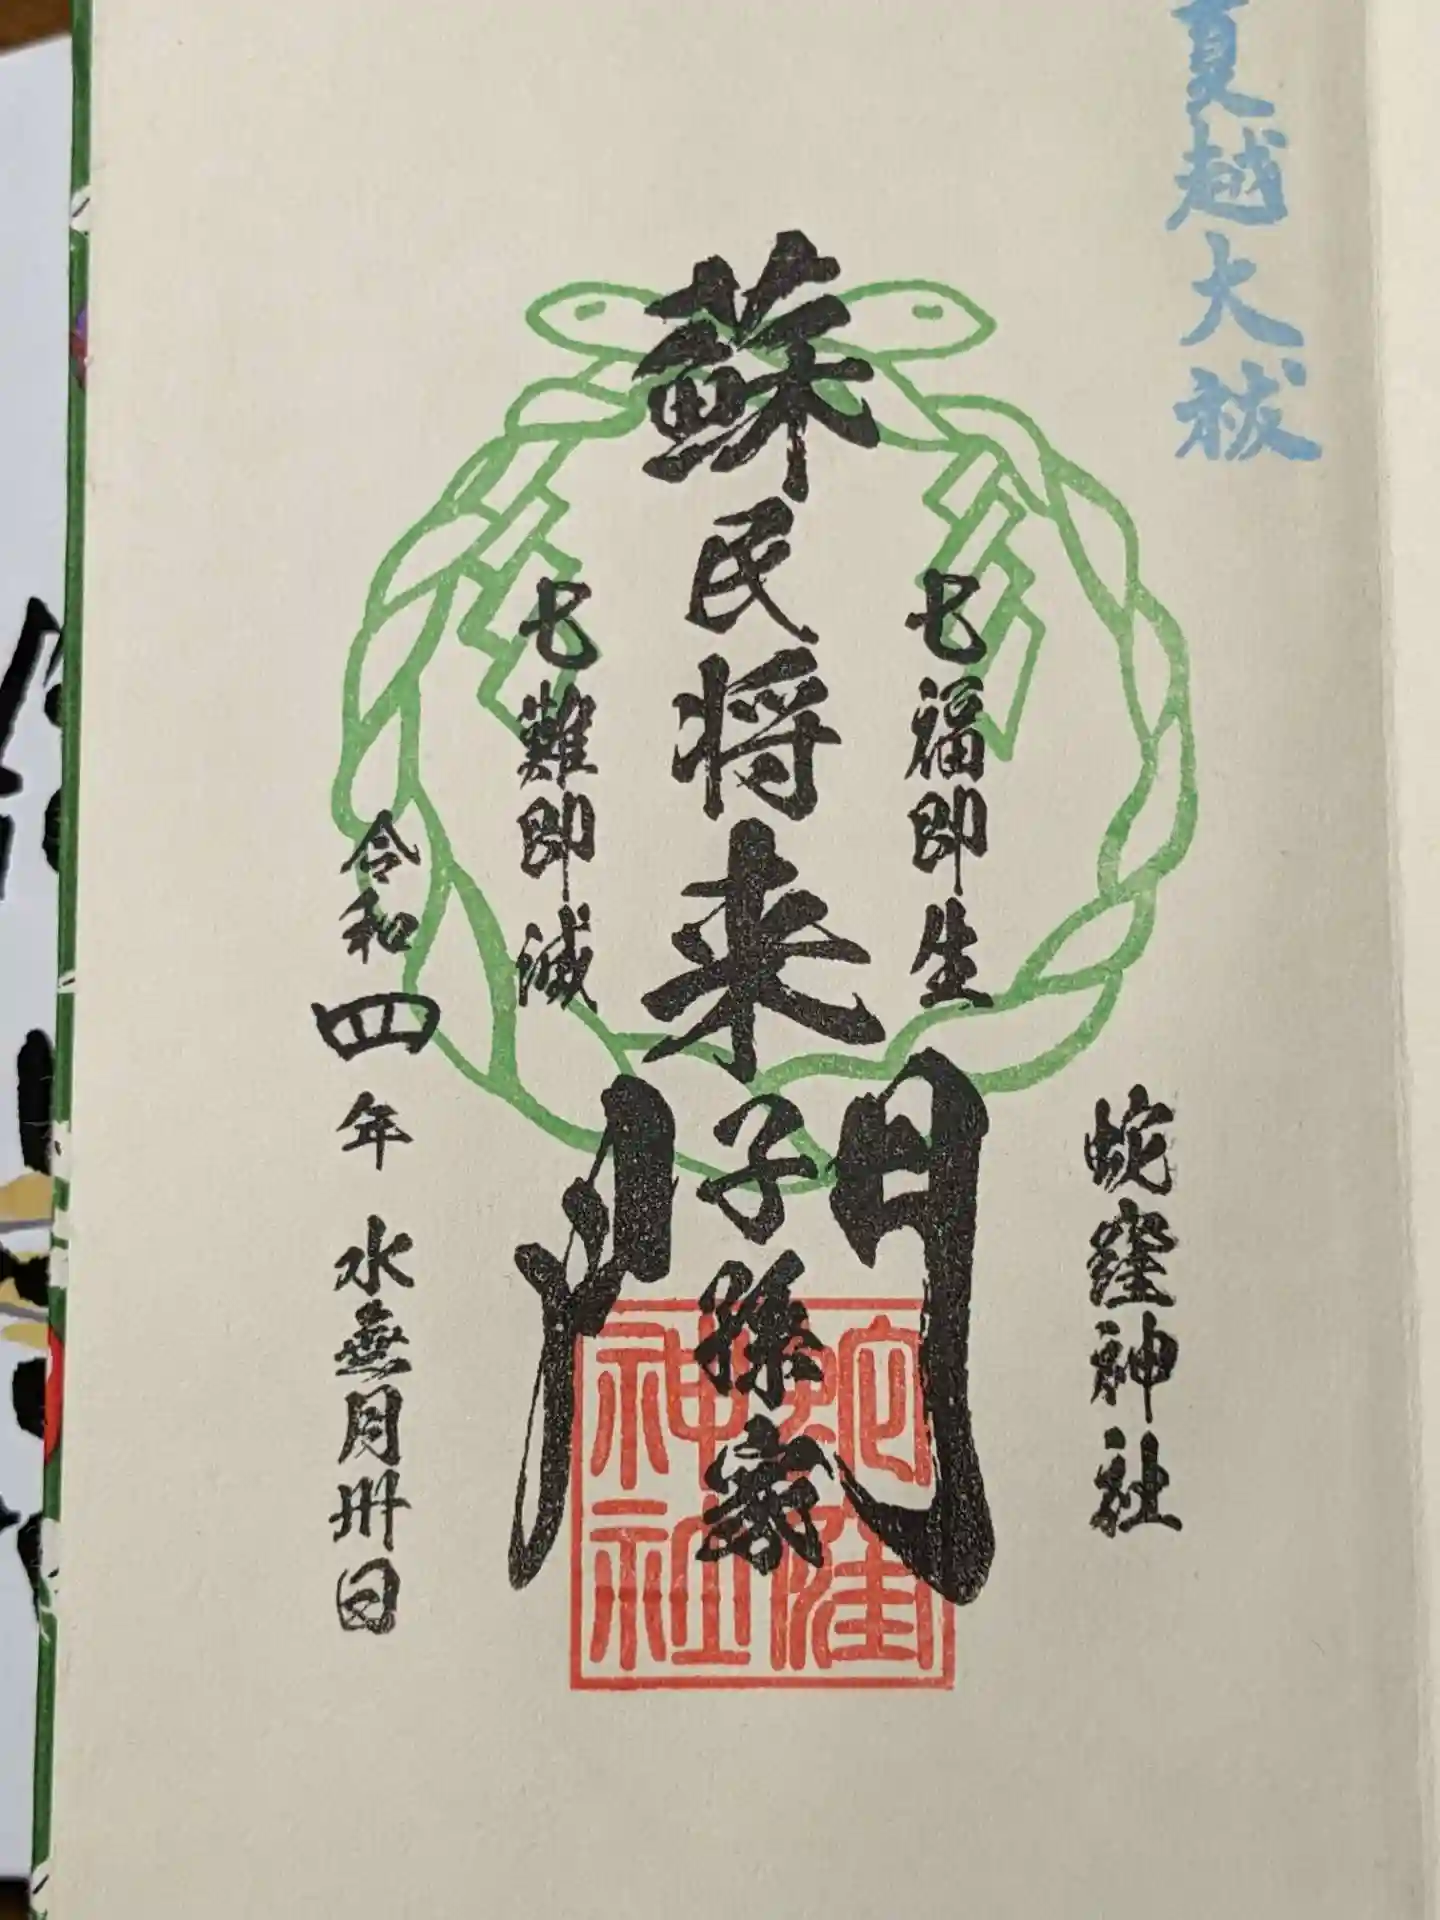 夏越大祓
蛇窪神社
七福即生
蘇民将来子孫家門
七難即滅
令和四年 水無月卅日
蛇窪
神社